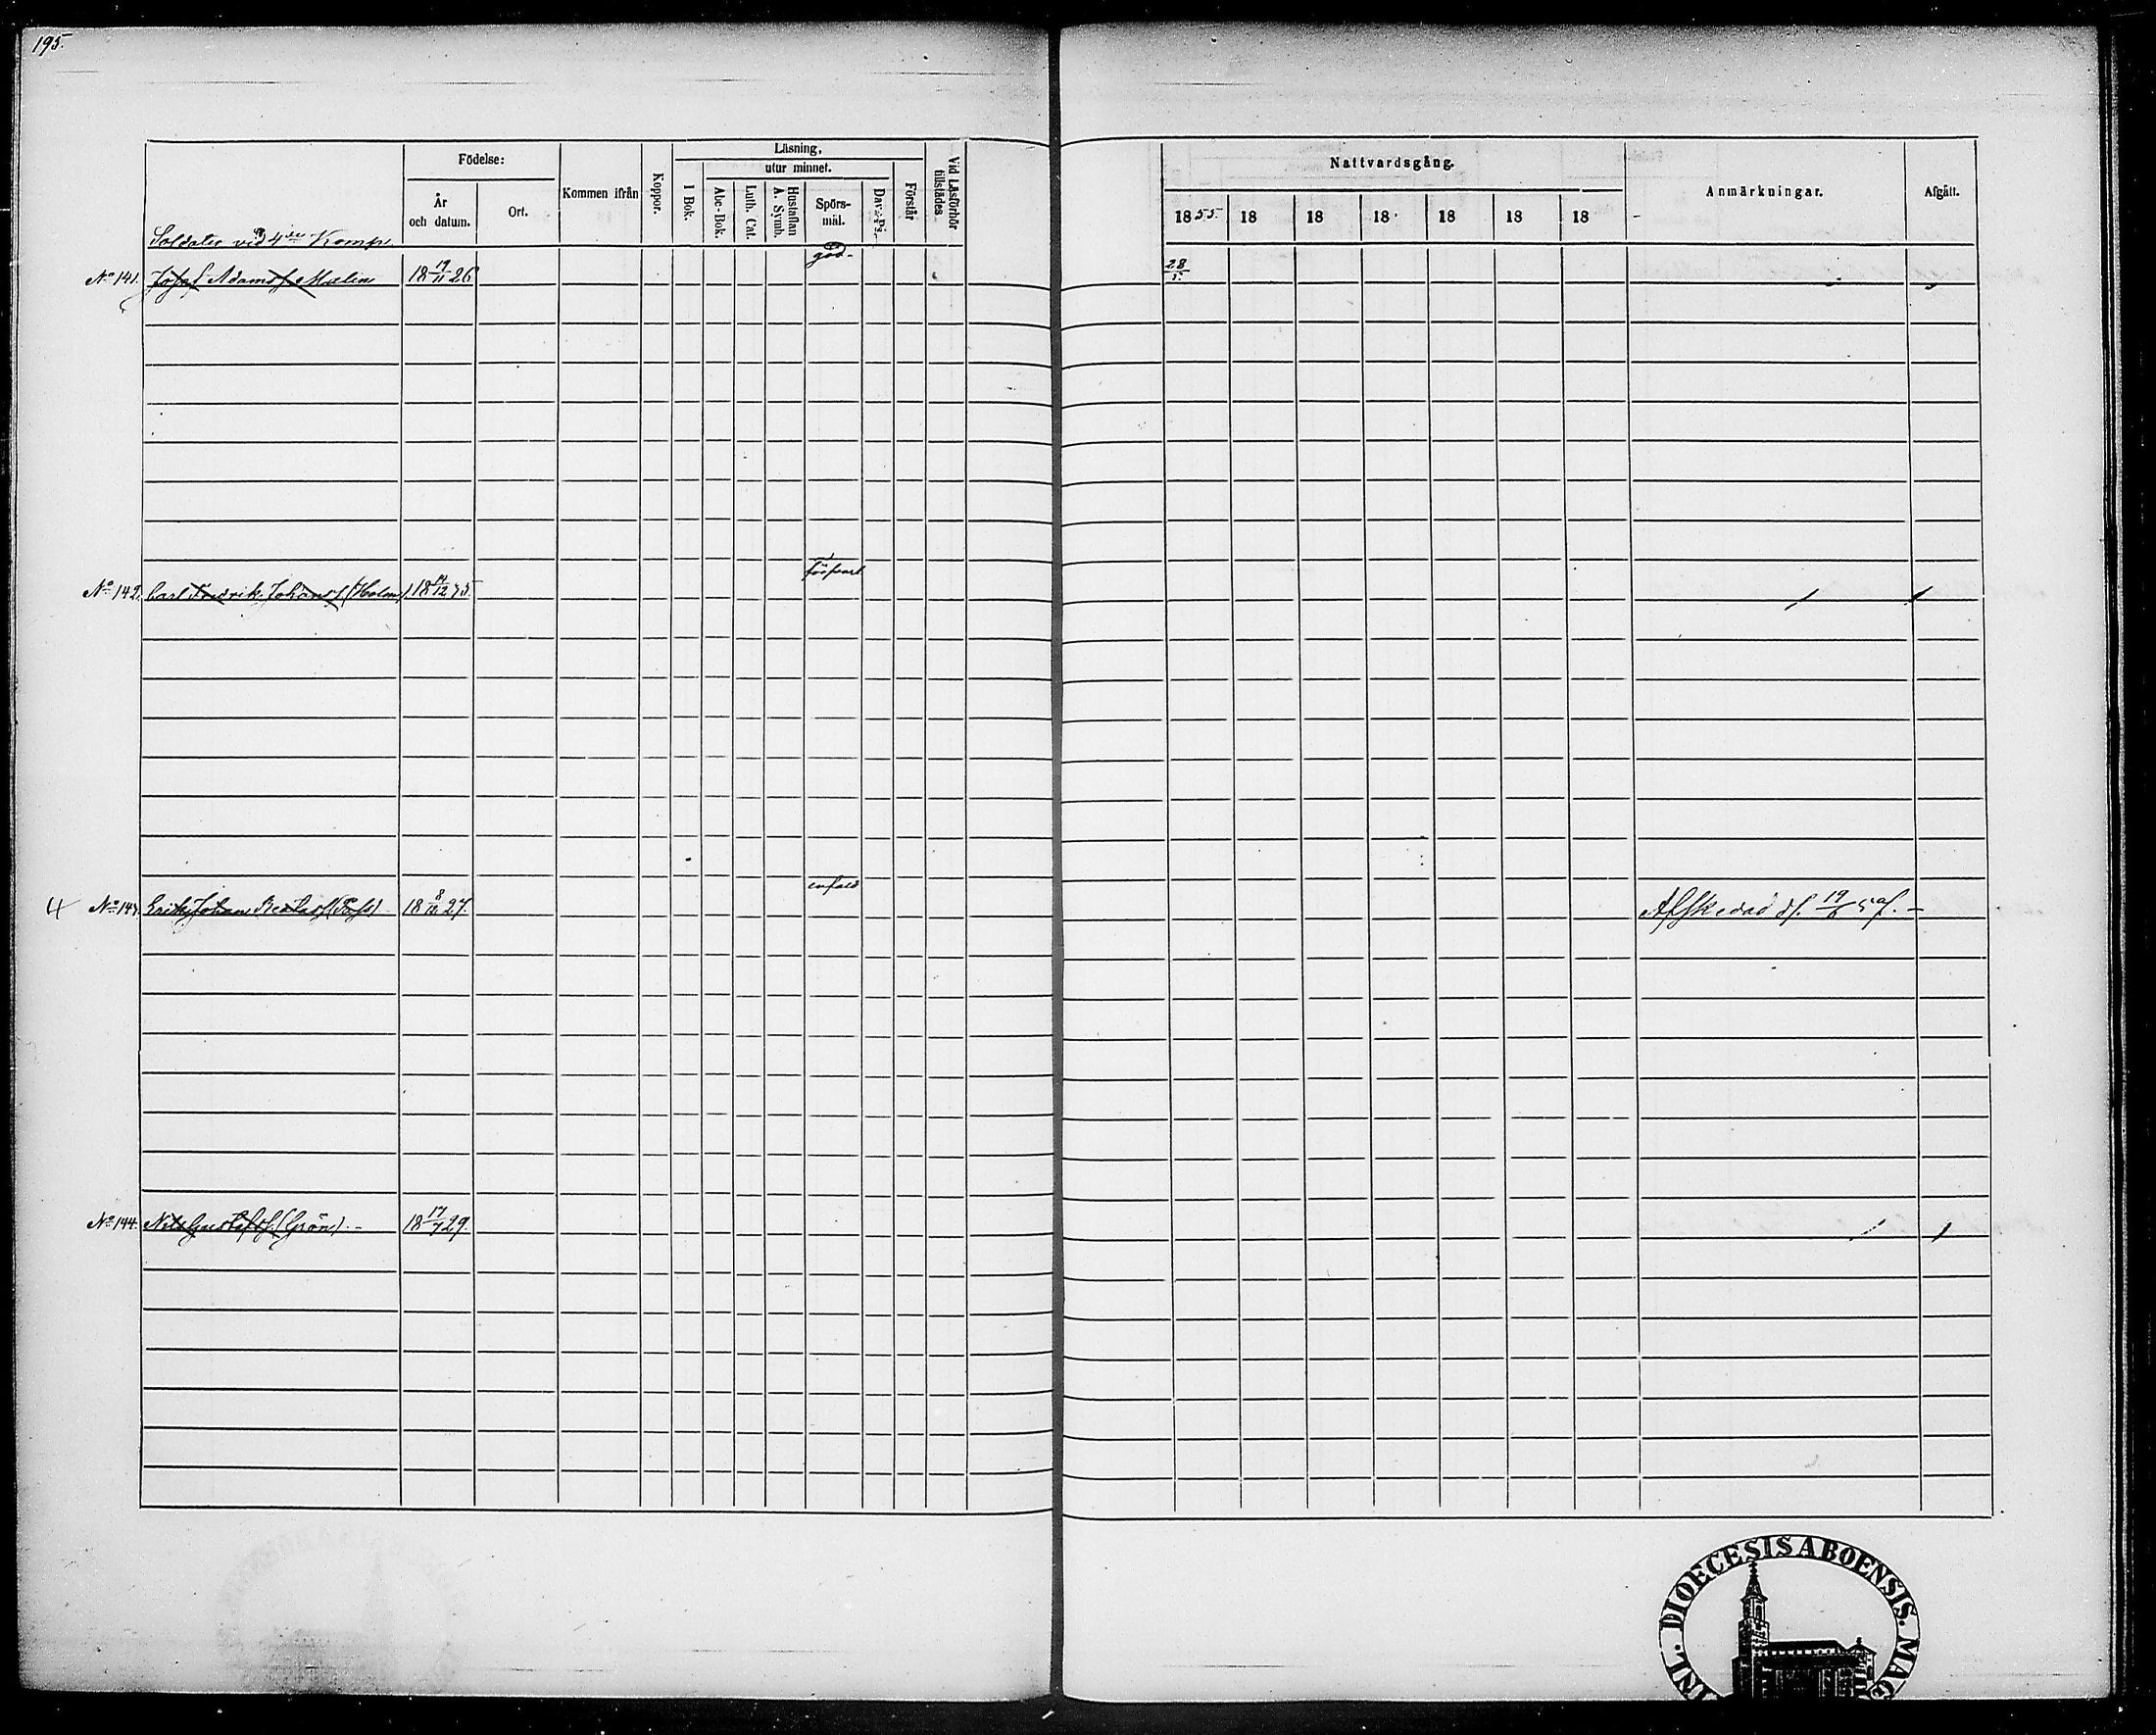 195.
Födelse:
År och datum.
Ort.
Kommen ifrån
Koppor.
Läsning,
utur minnet.
I Bok.
Abc-Bok.
Luth. Cat.
Hustaflan A. Symb.
Spörs-mål.
Dav. Ps.
Förstår
Vid Läsförhör tillstädes
Nattvardsgång.
1855 18 18 18 18 18 18
Anmärkningar.
Afgått.
Soldater vid 4de Komp.
No 141. Josef Adamsf Malin 18 19/11 26 god. 28/5
No 142. Carl Fredrik Johansf (Holm) 18 12 försvarl
4 No 143. Erik Johan 18 8 27. enfald Afskedad d. 19/6
No 144. Nils Gustafsf. (Grön). 18 17/7 29.
DIOECESIS ABOENSIS. MAG
INL.